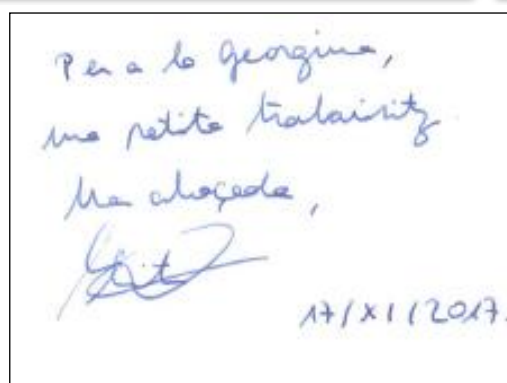 Per a la Georgina,
una petita
Una abraçada,
17/XI/2017.